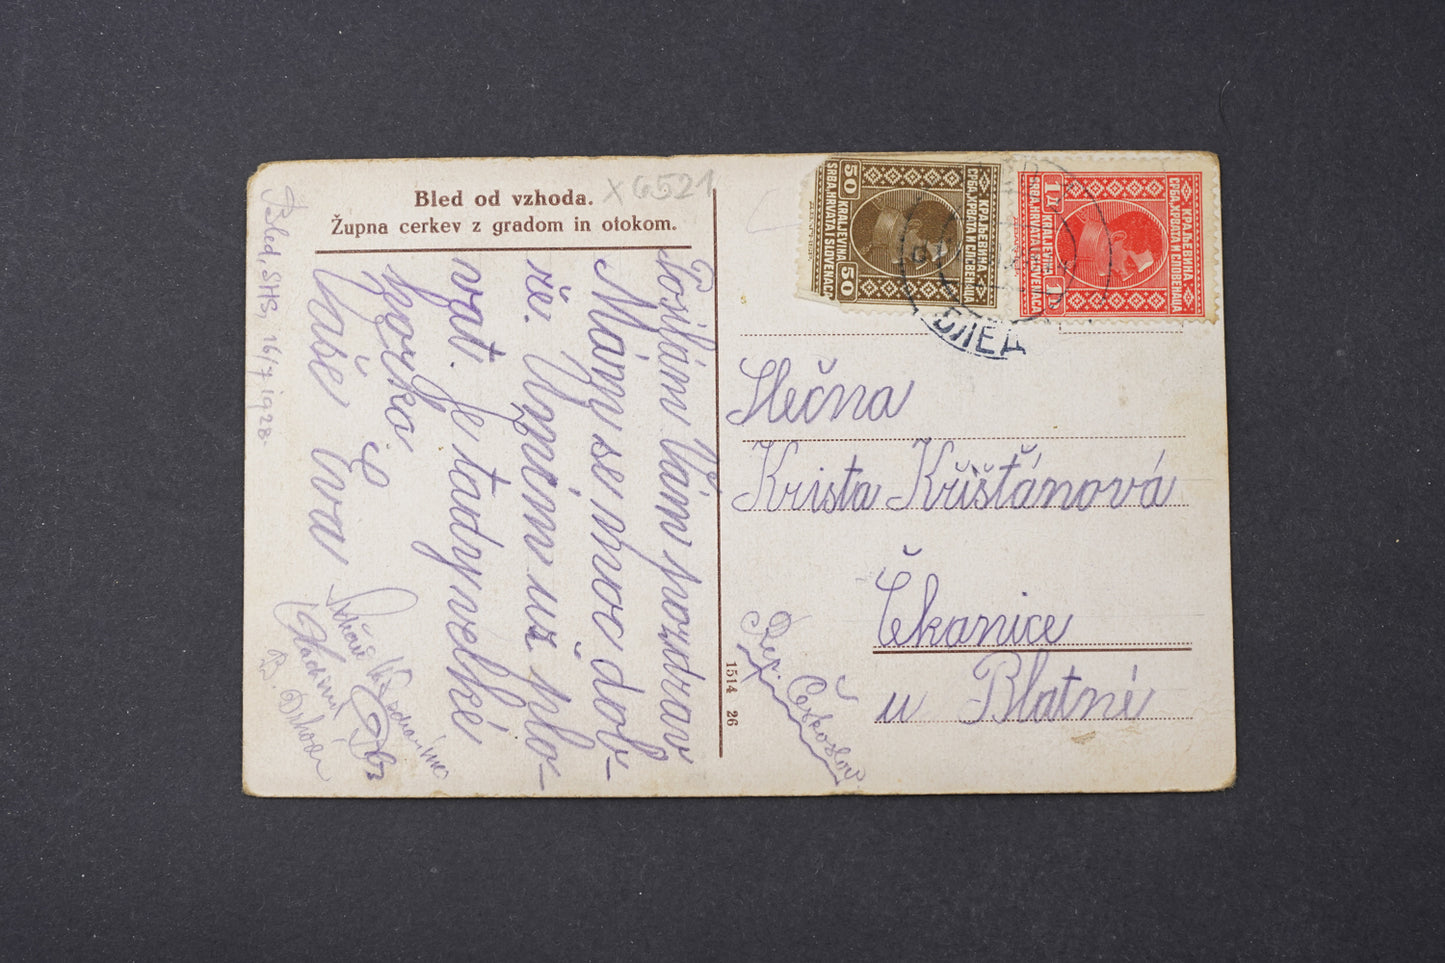 Bled od vzhoda.
Župna cerkev z gradom in otokom.
X 6521
Bled, SHS, 16/7 1928.
Posílám Vám pozdrav
Máme se moc dob-
ře. Umím už plo-
vat. Je tady velké
horko
Vaše Eva
1514 26
50 КРАЉЕВИНА
СРБА, ХРВАТА И СЛОВЕНАЦА
KRALJEVINA
SRBA, HRVATA I SLOVENACA
50
1 Д КРАЉЕВИНА
СРБА, ХРВАТА И СЛОВЕНАЦА
KRALJEVINA
SRBA, HRVATA I SLOVENACA
1 D
БЛЕД
Slečna
Krista Křišťánová
Čekanice
u Blatné
Rep. Českoslov